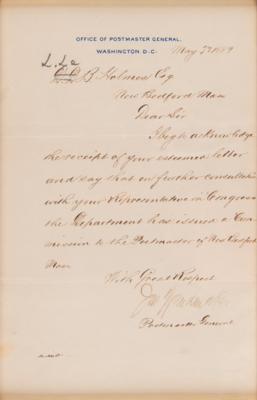 OFFICE OF POSTMASTER GENERAL,
WASHINGTON D.C.
May 1889
B Holmes Esq
New Bedford Mass
Dear Sir
I beg to acknowledge
the receipt of your esteemed letter
and say that on further consultation
with your Representative in Congress
the Department has issued a Com-
mission to the Postmaster of New Bedford
Mass
With Great Respect
Jno Wanamaker
Postmaster General